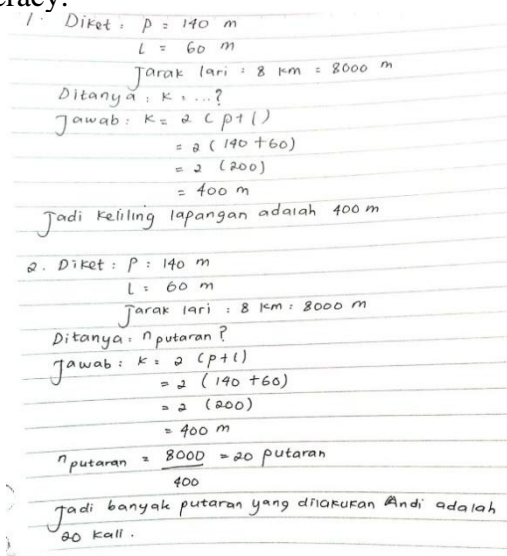 eracy.
1. Diket : p = 140 m
l = 60 m
Jarak lari : 8 km = 8000 m
Ditanya : K : ...?
Jawab : K = 2 (p+l)
= 2 (140 +60)
= 2 (200)
= 400 m
Jadi keliling lapangan adalah 400 m
2. Diket : p : 140 m
l : 60 m
Jarak lari : 8 km : 8000 m
Ditanya : n putaran ?
Jawab : K = 2 (p+l)
= 2 (140 +60)
= 2 (200)
= 400 m
n putaran = 8000 = 20 putaran
400
Jadi banyak putaran yang dilakukan Andi adalah
20 kali .